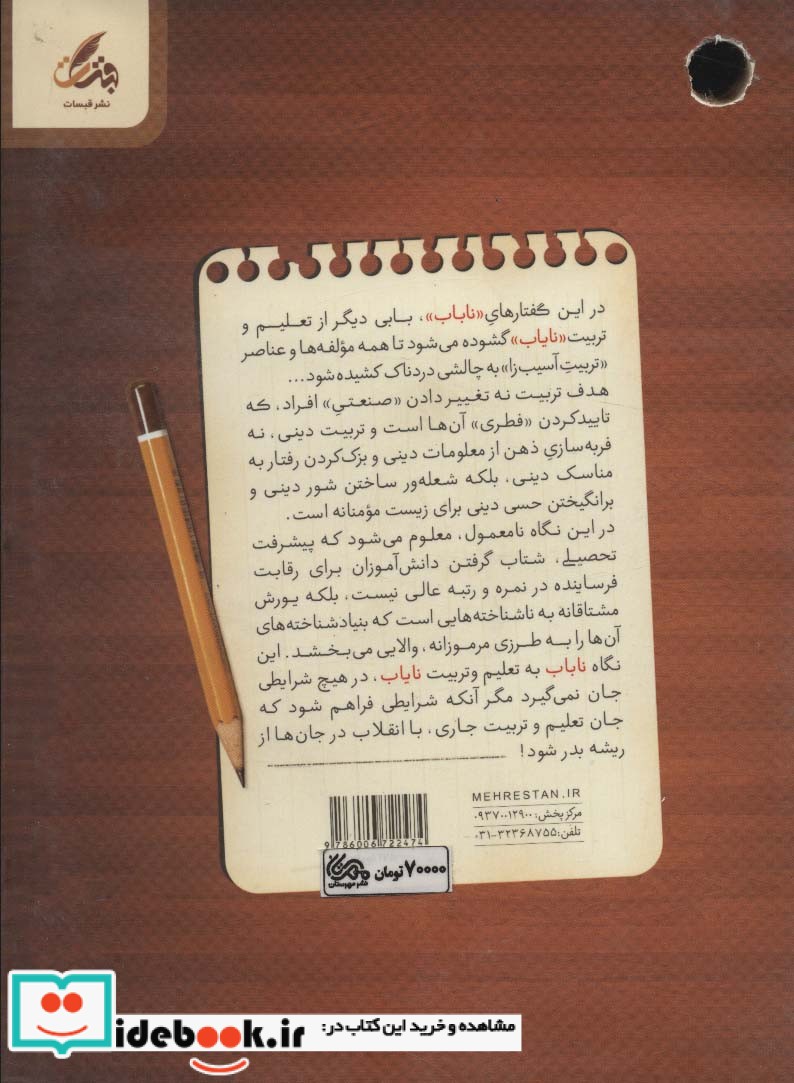 نشر قبسات
در این گفتارهایِ «ناباب»، بابی دیگر از تعلیم و
تربیت «نایاب» گشوده می‌شود تا همه مؤلفه‌ها و عناصر
«تربیتِ آسیب‌زا» به چالشی دردناک کشیده شود...
هدف تربیت نه تغییر دادن «صنعتیِ» افراد، که
تاییدکردن «فطری» آن‌ها است و تربیت دینی، نه
فربه‌سازیِ ذهن از معلومات دینی و بزک‌کردن رفتار به
مناسک دینی، بلکه شعله‌ور ساختن شور دینی و
برانگیختن حسی دینی برای زیست مؤمنانه است.
در این نگاه نامعمول، معلوم می‌شود که پیشرفت
تحصیلی، شتاب گرفتن دانش‌آموزان برای رقابت
فرساینده در نمره و رتبه عالی نیست، بلکه یورش
مشتاقانه به ناشناخته‌هایی است که بنیاد شناخته‌های
آن‌ها را به طرزی مرموزانه، والایی می‌بخشد. این
نگاه ناباب به تعلیم وتربیت نایاب، در هیچ شرایطی
جان نمی‌گیرد مگر آنکه شرایطی فراهم شود که
جان تعلیم و تربیت جاری، با انقلاب در جان‌ها از
ریشه بدر شود!
MEHRESTAN.IR
مرکز پخش: ۰۹۳۷۰۰۱۲۹۰۰
تلفن: ۰۳۱-۳۲۳۶۸۷۵۵
9786006722474
۷۰۰۰۰ تومان
نشر مهرستان
مشاهده و خرید این کتاب در:
idebook.ir